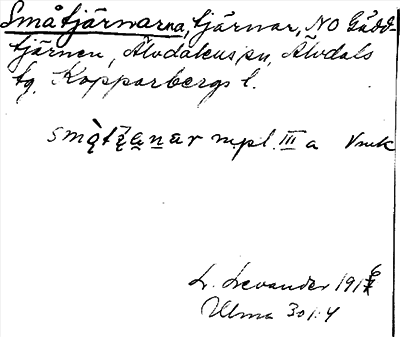 Småtjärnarna, tjärnar, NO Gädd-
tjärnen, Älvdalens sn, Älvdals
tg, Kopparbergs l.
mpl. III a Vmk
L. Levander 1916
Ulma 301:4